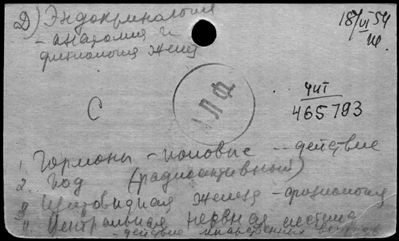 Д) Эндокринология
- анатомия и
физиология желез
18/VI 54
С
АЛФ
ЧИТ
465793
1. Гормоны - половые - действие
2. Иод (радиоактивный)
3. Щитовидная железа - физиология
4. Центральная нервная система
- действие